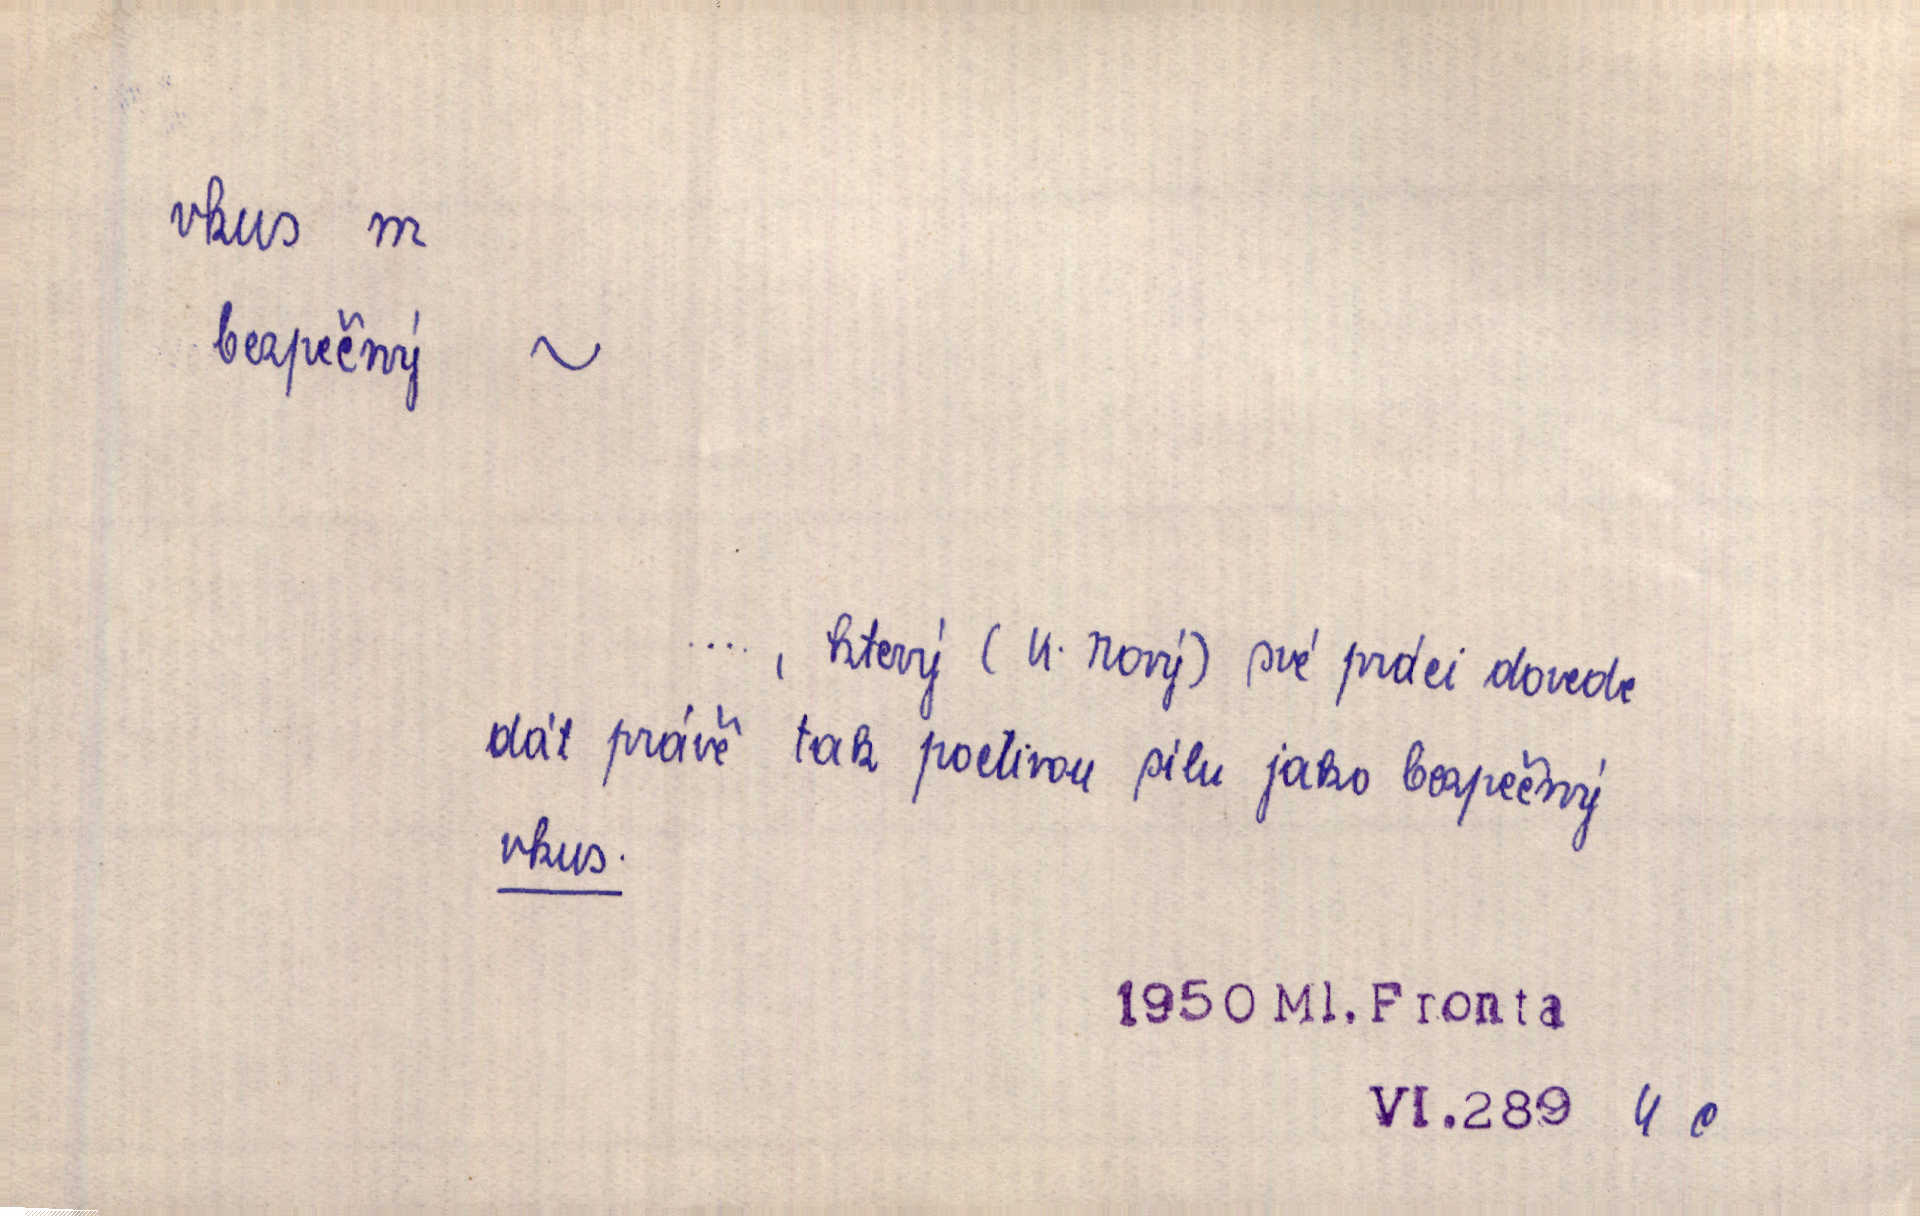 vkus m
bezpečný ~
...., který (K. Nový) své práci dovede
dát právě tak poctivou sílu jako bezpečný
vkus.
1950 Ml. Fronta
VI.289 4